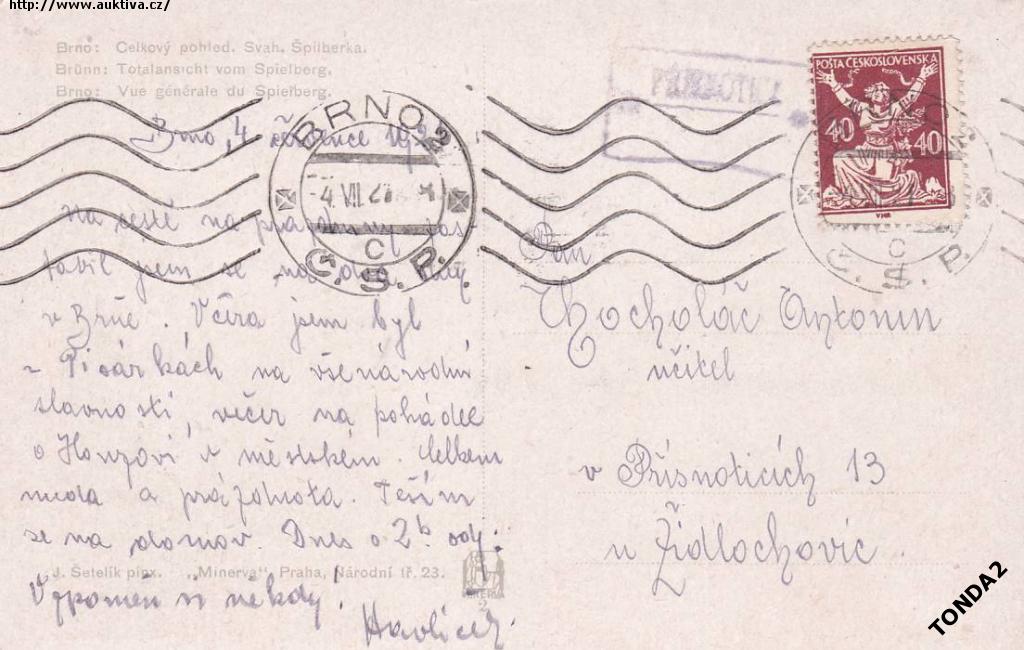 http://www.auktiva.cz/
Brno: Celkový pohled. Svah. Špilberka.
Brünn: Totalansicht vom Spielberg.
Brno: Vue générale du Spielberg.
POŠTA ČESKOSLOVENSKÁ
40 40
BRNO 2
-4. VII.
C
Č.S.P.
C
Č.S.P.
Brno, 4 července
Na cestě na prázdniny
jsem se na dva dny
v Brně. Včera jsem byl
v Pisárkách na všenárodní
slavnosti, večer na pohádce
o Honzovi v městském. Celkem
nuda a prázdnota. Těším
se na domov. Dnes o 2h odj.
Vzpomeň si někdy!
Pan
Chocholáč Antonín
učitel
v Přísnoticích 13
u Židlochovic
J. Šetelík pinx. „Minerva“, Praha, Národní tř. 23.
2
TONDA2